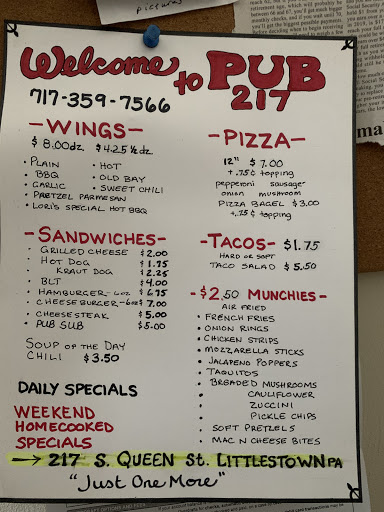 Welcome to PUB 217
717-359-7566
- WINGS -
$ 8.00 dz. $ 4.25 ½ dz
• PLAIN • HOT
• BBQ • OLD BAY
• GARLIC • SWEET CHILI
• PRETZEL PARMESAN
• LORI'S SPECIAL HOT BBQ
- PIZZA -
12" $ 7.00
+.75¢ topping
pepperoni sausage
onion mushroom
PIZZA BAGEL $3.00
+.25¢ topping
- SANDWICHES -
• GRILLED CHEESE $2.00
• HOT DOG $1.75
• KRAUT DOG $2.25
• BLT $4.00
• HAMBURGER - 6oz $6.75
• CHEESEBURGER - 6oz $7.00
• CHEESESTEAK $5.00
• PUB SUB $5.00
SOUP OF THE DAY
CHILI $3.50
- TACOS - $1.75
HARD OR SOFT
TACO SALAD $5.50
- $2.50 MUNCHIES -
AIR FRIED
• FRENCH FRIES
• ONION RINGS
• CHICKEN STRIPS
• MOZZARELLA STICKS
• JALAPENO POPPERS
• TAQUITOS
• BREADED MUSHROOMS
• CAULIFLOWER
• ZUCCINI
• PICKLE CHIPS
• SOFT PRETZELS
• MAC N CHEESE BITES
DAILY SPECIALS
WEEKEND
HOMECOOKED
SPECIALS
→ 217 S. QUEEN St. LITTLESTOWN PA
"Just One More"